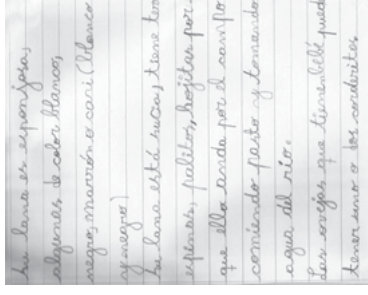 Su lana es esponjosa,
algunas de color blanco,
negro, marrón o cari (blanco
y negro)
Su lana está sucia, tiene
espinas, palitos, hojitas por
que ella anda por el campo
comiendo pasto y tomando
agua del río.
Las ovejas que tienen bebé
tener uno o dos corderitos